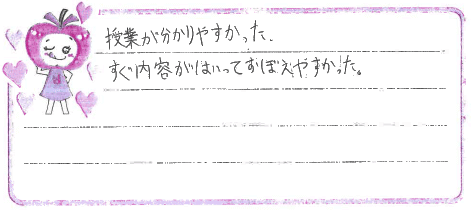 授業が分かりやすかった.
すぐ内容がはいっておぼえやすかった。